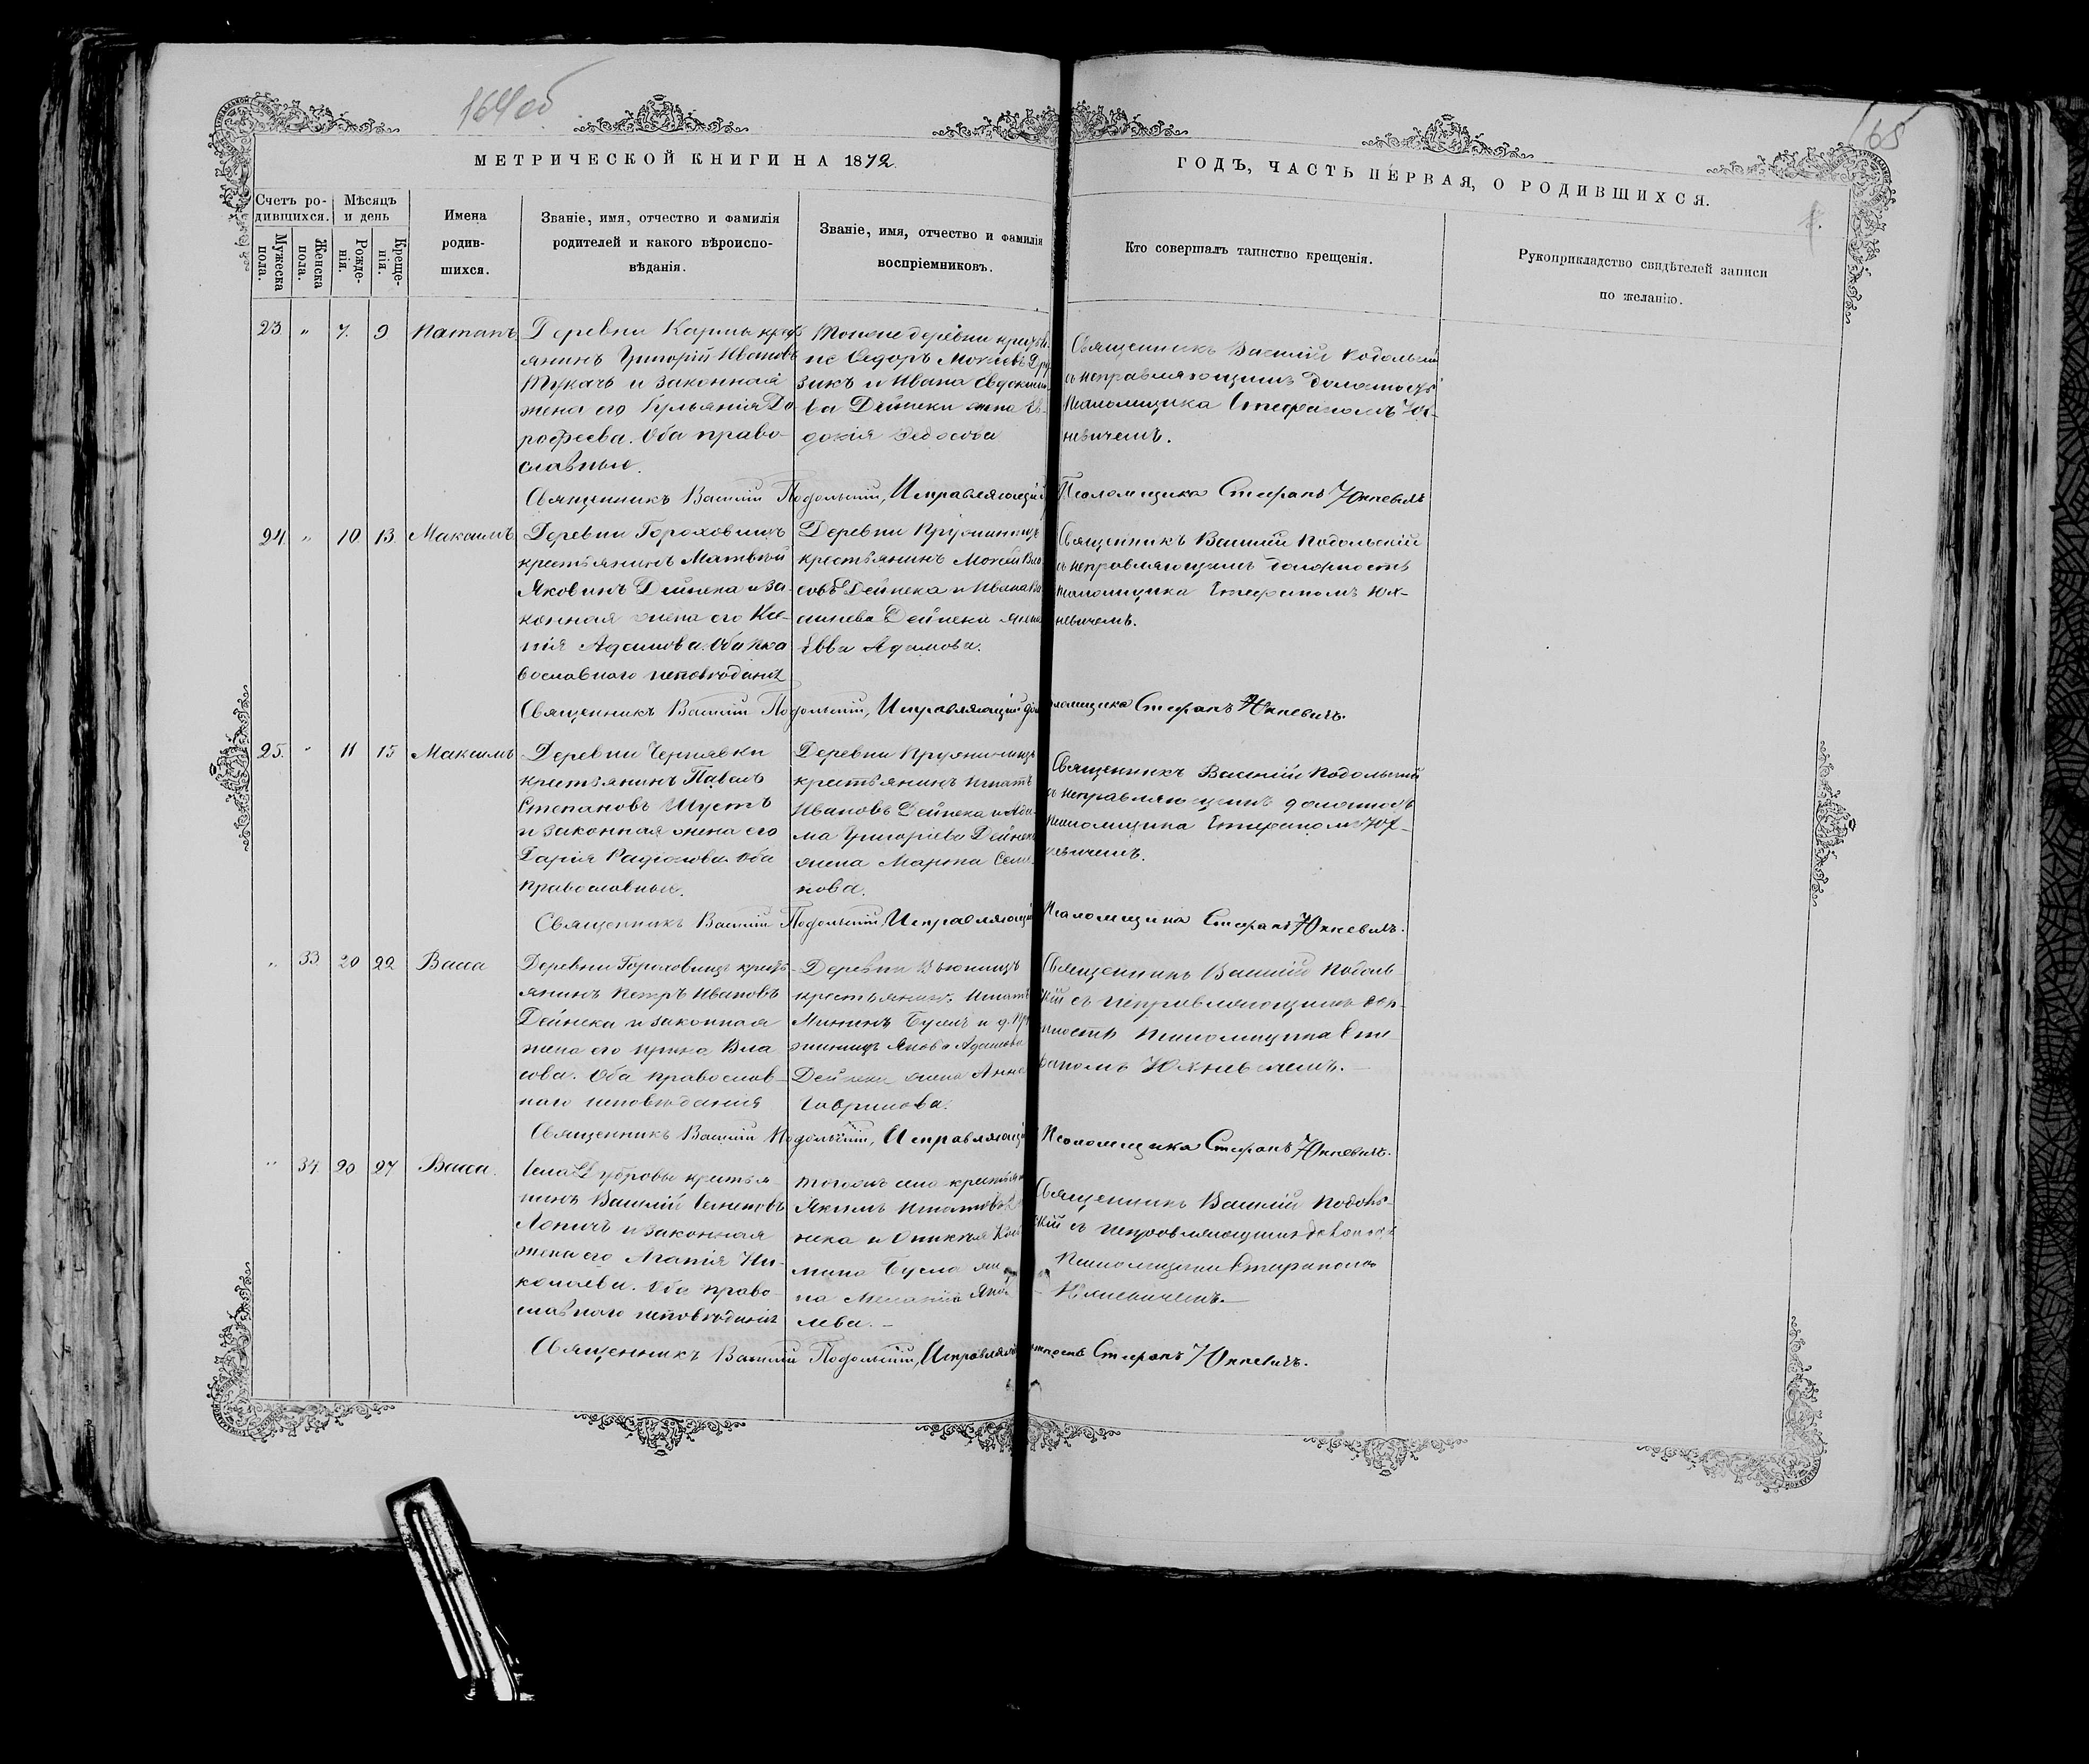 164об
165
МЕТРИЧЕСКОЙ КНИГИ НА 1872
ГОДЪ, ЧАСТЬ ПЕРВАЯ, О РОДИВШИХСЯ.
Счетъ ро-
дившихся.
Мужеска
пола.
Женска
пола.
Мѣсяцъ
и день
Рожде-
нія.
Креще-
нія.
Имена
родив-
шихся.
Званіе, имя, отчество и фамилія
родителей и какого вѣроиспо-
вѣданія.
Званіе, имя, отчество и фамилія
воспріемниковъ.
Кто совершалъ таинство крещенія.
Рукоприкладство свидѣтелей записи
по желанію.
23 " 7. 9 Патапъ
Деревни
янинъ Григорій Ивановъ
Тукачъ и законная
жена его Ульянія До-
рофеева. Оба право-
славные.
Тойже деревни
не Ѳедоръ
зикъ и Ивана Евдоким
ва Дейнеки жена Ев-
докія Ѳедосова
Священникъ Василій Подольскій
съ исправляющимъ должность
Псаломщика Стефаномъ Юх-
невичемъ.
Священникъ Василій Подольскій, Исправляющій Псаломщика Стефанъ Юхневичъ
24 " 10 13 Максимъ
Деревни Гороховищъ
крестьянинъ Матвѣй
Яковинъ Дейнека и за-
конная жена его Ксе-
нія Адамова. Оба пра
вославнаго исповѣданія
Деревни
крестьянинъ Мокей Вла
совъ Дейнека и Ивана Ва
сильева Дейнеки жена
Евва Адамова.
Священникъ Василій Подольскій
съ исправляющимъ должность
псаломщика Стефаномъ Юх-
невичемъ.
Священникъ Василій Подольскій, Исправляющій псаломщика Стефанъ Юхневичъ.
25. " 11 15 Максимъ
Деревни Чернявки
крестьянинъ Павелъ
Степановъ Шустъ
и законная жена его
Дарія Радіонова. Оба
православные.
Деревни
крестьянинъ Игнатъ
Ивановъ Дейнека и Ада-
ма Григоріева Дейнек
жена Марта Семе-
нова.
Священникъ Василій Подольскій
съ исправляющимъ должность
псаломщика Стефаномъ Юх-
невичемъ.
Священникъ Василій Подольскій, Исправляющій Псаломщика Стефанъ Юхневичъ.
" 33 20 22 Васса
Деревни Гороховищъ кресть-
янинъ Петръ Ивановъ
Дейнека и законная
жена его Вла
сова. Оба православ-
наго исповѣданія
Деревни Вьюнищъ
крестьянинъ Игнатъ
Мининъ
Якова Адамова
Дейнеки жена Анна
Гаврилова.
Священникъ Василій Подоль-
скій съ исправляющимъ дол-
жность псаломщика Сте-
фаномъ Юхневичемъ.
Священникъ Василій Подольскій, Исправляющій Псаломщика Стефанъ Юхневичъ.
" 34 20 27 Васса.
Села Дубровы крестья-
нинъ Василій Семеновъ
и законная
жена его Агатія Ни-
колаева. Оба право-
славнаго исповѣданія
тогожъ села крестьян
Якимъ Игнатовъ
нека и
мина
на Меланія Яков
лева.
Священникъ Василій Подоль-
скій съ исправляющимъ должность
Псаломщика Стефаномъ
Юхневичемъ.
Священникъ Василій Подольскій, Исправляющій должность Стефанъ Юхневичъ.